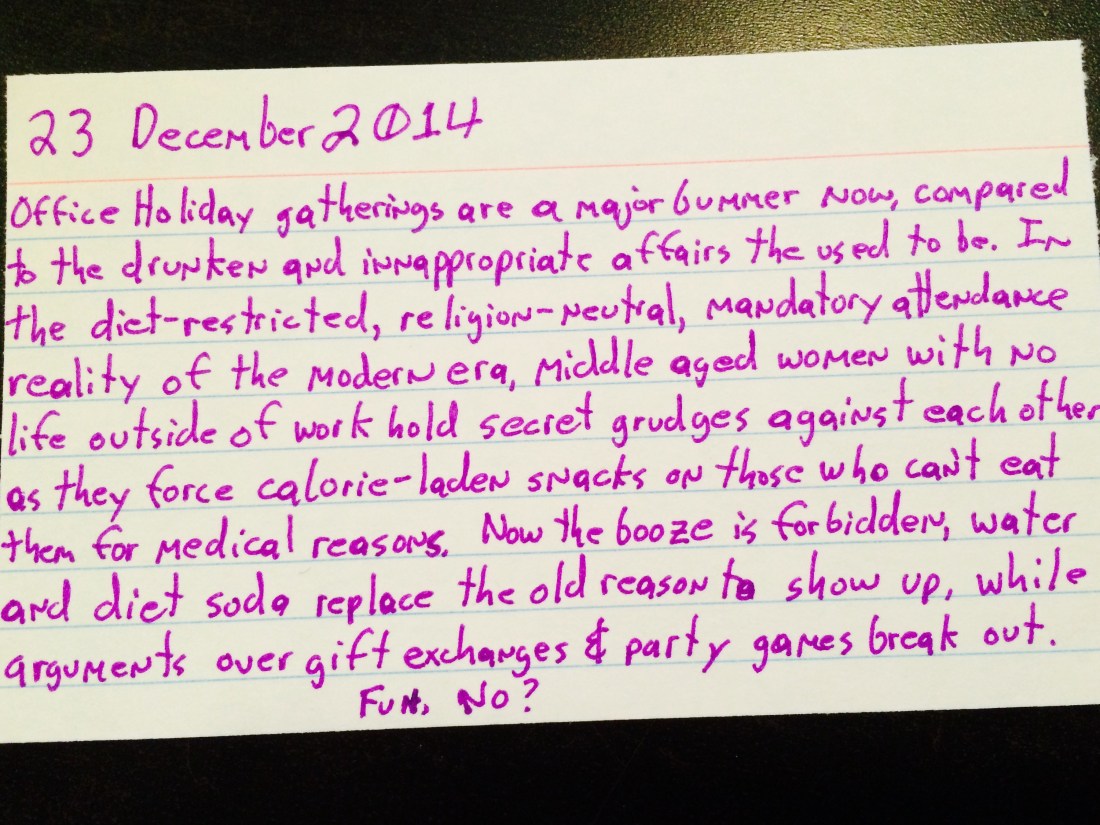 23 December 2014
Office Holiday gatherings are a major bummer now, compared
to the drunken and innappropriate affairs the used to be. In
the diet-restricted, religion-neutral, mandatory attendance
reality of the modern era, middle aged women with no
life outside of work hold secret grudges against each other
as they force calorie-laden snacks on those who can't eat
them for medical reasons. Now the booze is forbidden, water
and diet soda replace the old reason to show up, while
arguments over gift exchanges & party games break out.
Fun, No?